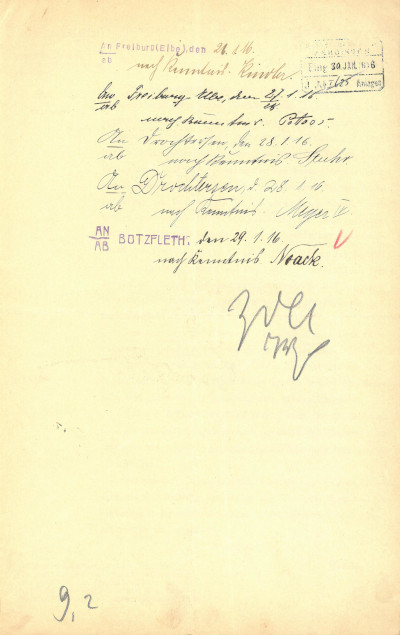 An Freiburg (Elbe), den 26. 1. 16.
ab
nach Kenntnis. Kindler.
30. JAN. 1916
Anlagen
An Freiburg-Elbe, den 27/28 1. 16
ab
nach Kenntnis.
An Drochtersen, den 28. 1. 16.
ab nach Kenntnis Stuhr
An Drochtersen, d. 28. 1. 16.
ab nach Kenntnis. Meyer
AN
AB BÜTZFLETH, den 29. 1. 16.
nach Kenntnis. Noack.
ZdA
9, 2